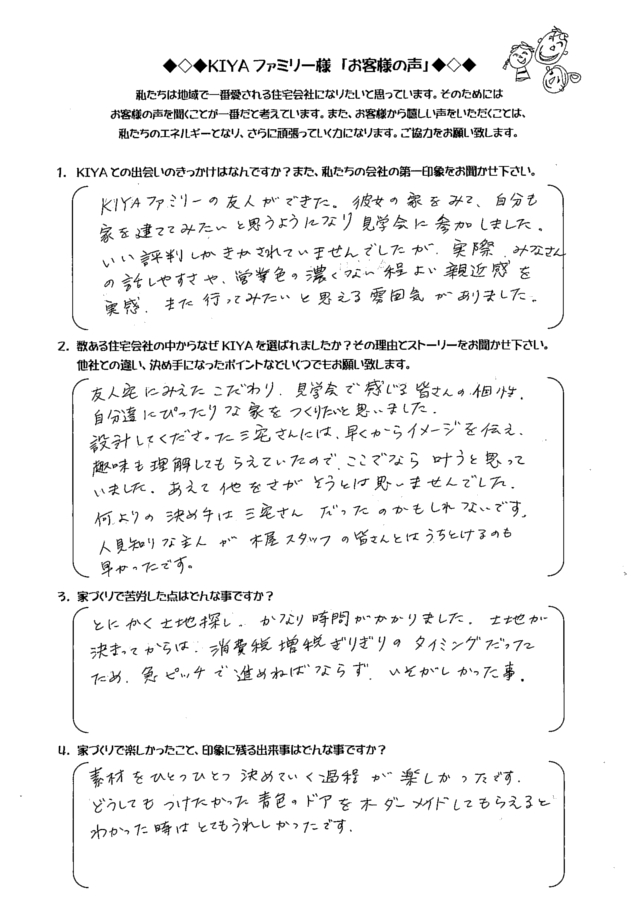 ◆◇◆KIYAファミリー様「お客様の声」◆◇◆
私たちは地域で一番愛される住宅会社になりたいと思っています。そのためには
お客様の声を聞くことが一番だと考えています。また、お客様から嬉しい声をいただくことは、
私たちのエネルギーとなり、さらに頑張っていく力になります。ご協力をお願い致します。
1. KIYAとの出会いのきっかけはなんですか？また、私たちの会社の第一印象をお聞かせ下さい。
KIYAファミリーの友人ができた。彼女の家をみて、自分も
家を建ててみたいと思うようになり見学会に参加しました。
いい評判しかきかされていませんでしたが、実際、みなさん
の話しやすさや、営業色の濃くない程よい親近感を
実感、また行ってみたいと思える雰囲気がありました。
2. 数ある住宅会社の中からなぜKIYAを選ばれましたか？その理由とストーリーをお聞かせ下さい。
他社との違い、決め手になったポイントなどいくつでもお願い致します。
友人宅にみえたこだわり、見学会で感じる皆さんの個性、
自分達にぴったりな家をつくりたいと思いました。
設計してくださった三宅さんには、早くからイメージを伝え、
趣味も理解してもらえていたので、ここでなら叶うと思って
いました。あえて他をさがそうとは思いませんでした。
何よりの決め手は三宅さんだったのかもしれないです。
人見知りな主人が木屋スタッフの皆さんとはうちとけるのも
早かったです。
3. 家づくりで苦労した点はどんな事ですか？
とにかく土地探し。かなり時間がかかりました。土地が
決まってからは、消費税増税ぎりぎりのタイミングだった
ため、急ピッチで進めねばならず、いそがしかった事。
4. 家づくりで楽しかったこと、印象に残る出来事はどんな事ですか？
素材をひとつひとつ決めていく過程が楽しかったです。
どうしてもつけたかった青色のドアをオーダーメイドしてもらえると
わかった時はとてもうれしかったです。